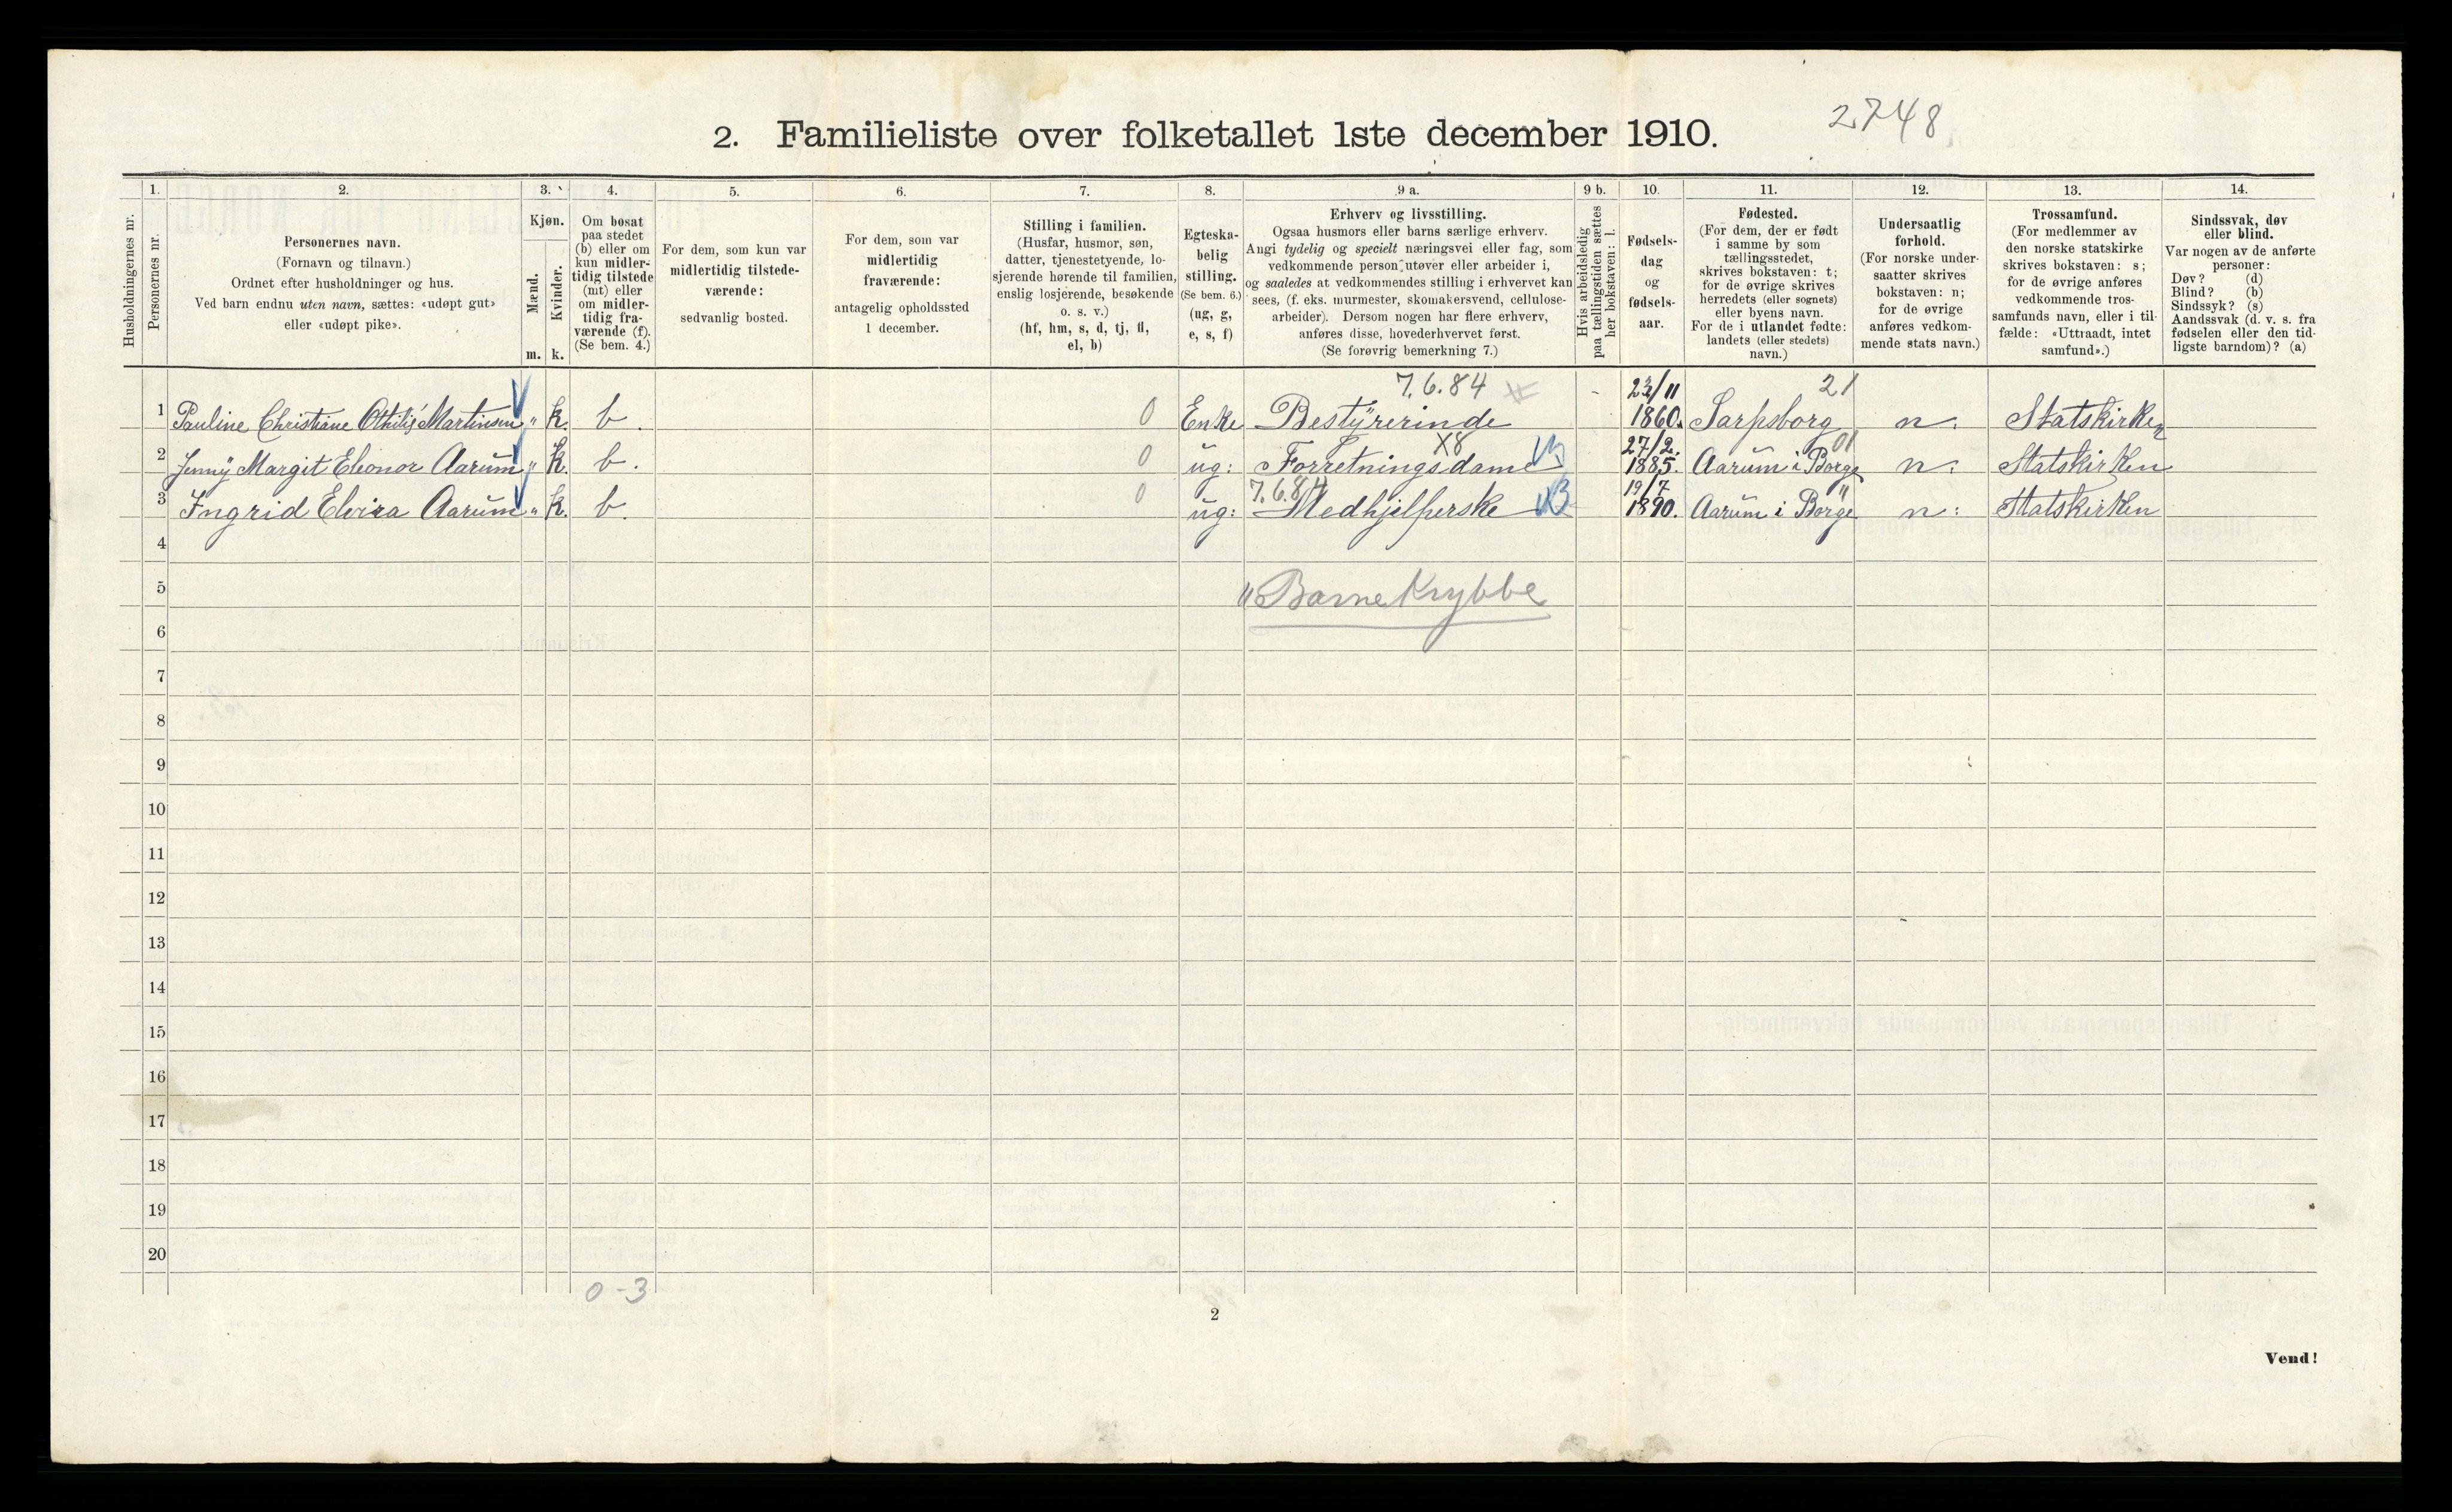 2748
2. Familieliste over folketallet 1ste december 1910.
1. 2. 3. 4. 5. 6. 7. 8. 9 a. 9 b. 10. 11. 12. 13. 14.
Husholdningernes nr.
Personernes nr.
Personernes navn.
(Fornavn og tilnavn.)
Ordnet efter husholdninger og hus.
Ved barn endnu uten navn, sættes: «udøpt gut»
eller «udøpt pike».
Kjøn.
Mænd.
Kvinder.
m. k.
Om bosat
paa stedet
(b) eller om
kun midler-
tidig tilstede
(mt) eller
om midler-
tidig fra-
værende (f).
(Se bem. 4.)
For dem, som kun var
midlertidig tilstede-
værende:
sedvanlig bosted.
For dem, som var
midlertidig
fraværende:
antagelig opholdssted
1 december.
Stilling i familien.
(Husfar, husmor, søn,
datter, tjenestetyende, lo-
sjerende hørende til familien,
enslig losjerende, besøkende
o. s. v.)
(hf, hm, s, d, tj, fl,
el, b)
Egteska-
belig
stilling.
(Se bem. 6.)
(ug, g,
e, s, f)
Erhverv og livsstilling.
Ogsaa husmors eller barns særlige erhverv.
Angi tydelig og specielt næringsvei eller fag, som
vedkommende person utøver eller arbeider i,
og saaledes at vedkommendes stilling i erhvervet kan
sees, (f. eks. murmester, skomakersvend, cellulose-
arbeider). Dersom nogen har flere erhverv,
anføres disse, hovederhvervet først.
(Se forøvrig bemerkning 7.)
Hvis arbeidsledig
paa tællingstiden sættes
her bokstaven: l.
Fødsels-
dag
og
fødsels-
aar.
Fødested.
(For dem, der er født
i samme by som
tællingsstedet,
skrives bokstaven: t;
for de øvrige skrives
herredets (eller sognets)
eller byens navn.
For de i utlandet fødte:
landets (eller stedets)
navn.)
Undersaatlig
forhold.
(For norske under-
saatter skrives
bokstaven: n;
for de øvrige
anføres vedkom-
mende stats navn.)
Trossamfund.
(For medlemmer av
den norske statskirke
skrives bokstaven: s;
for de øvrige anføres
vedkommende tros-
samfunds navn, eller i til-
fælde: «Uttraadt, intet
samfund».)
Sindssvak, døv
eller blind.
Var nogen av de anførte
personer:
Døv? (d)
Blind? (b)
Sindssyk? (s)
Aandssvak (d. v. s. fra
fødselen eller den tid-
ligste barndom)? (a)
7.6.84 23/11 21
1 Pauline Christiane Othilie Martinsen " k. b. 0 Enke Bestyrerinde 1860. Sarpsborg n. Statskirken
X8 27/2. 01
2 Jenny Margit Eleonor Aarum " k. b. 0 ug: Forretningsdame 1885. Aarum i Borge n: Statskirken
7.6.84 19/7 "
3 Ingrid Elvira Aarum " k. b. 0 ug: Medhjelperske 1890. Aarum i Borge n: Statskirken
4
5 "Barnekrybbe
6
7
8
9
10
11
12
13
14
15
16
17
18
19
20
0-3
2
Vend!